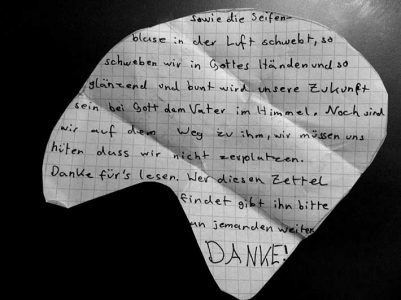 sowie die Seifen-
blase in der Luft schwebt, so
schweben wir in Gottes Händen und so
glänzend und bunt wird unsere Zukunft
sein bei Gott dem Vater im Himmel. Noch sind
wir auf dem Weg zu ihm, wir müssen uns
hüten dass wir nicht zerplatzen.
Danke für's lesen. Wer diesen Zettel
findet gibt ihn bitte
an jemanden weiter.
DANKE!